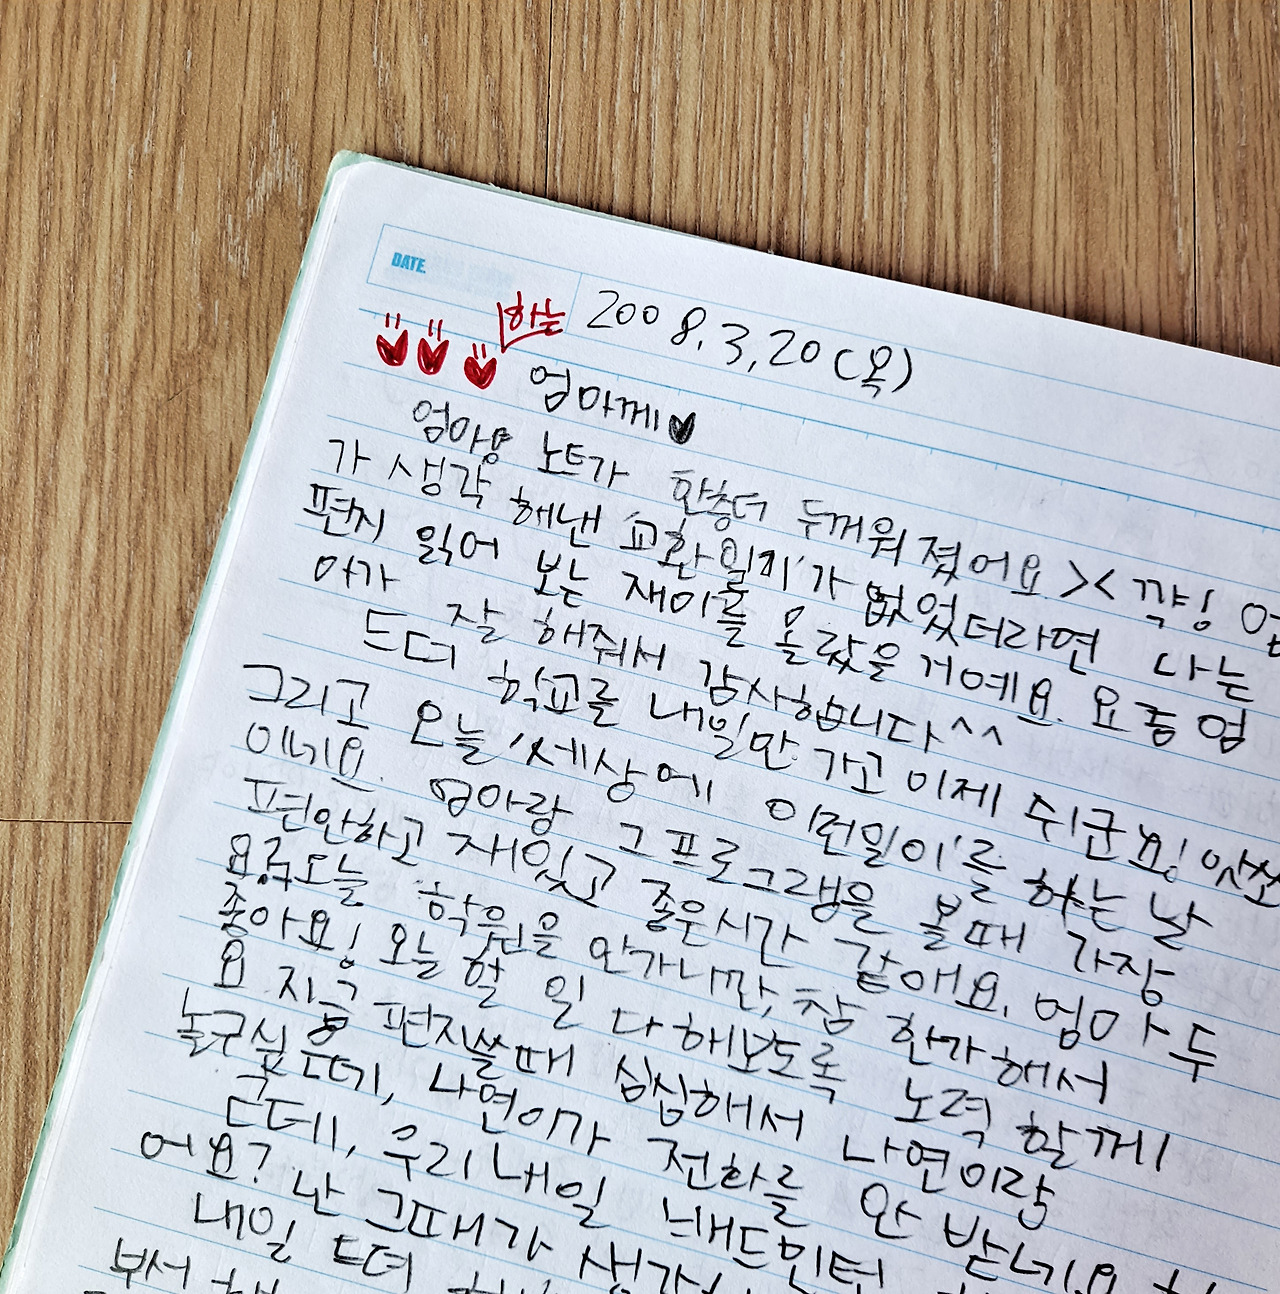 DATE.
하늘
2008.3.20(목)
엄마께♥
엄마양 노트가 한층더 두꺼워졌어요>< 꺅! 엄
가 생각 해낸 '교환일기'가 없었더라면 나는
편지 읽어 보는 재미를 몰랐을거예요. 요즘 엄
마가 잘 해줘서 감사합니다^^
드뎌 학교를 내일만 가고 이제 쉬군요! 앗싸
그리고 오늘 '세상에 이런일이'를 하는 날
이네요. 엄마랑 그 프로그램을 볼때 가장
편안하고 재밌고 좋은시간 같애요. 엄마 두
요? 오늘 학원을 안가니깐, 참 한가해서
좋아요! 오늘 할 일 다해보도록 노력 할께
요 지금 편지쓸때 심심해서 나연이랑
놀구싶은데, 나연이가 전화를 안 받네요
근데, 우리내일 배드민턴
어요? 난 그때가
내일 드뎌